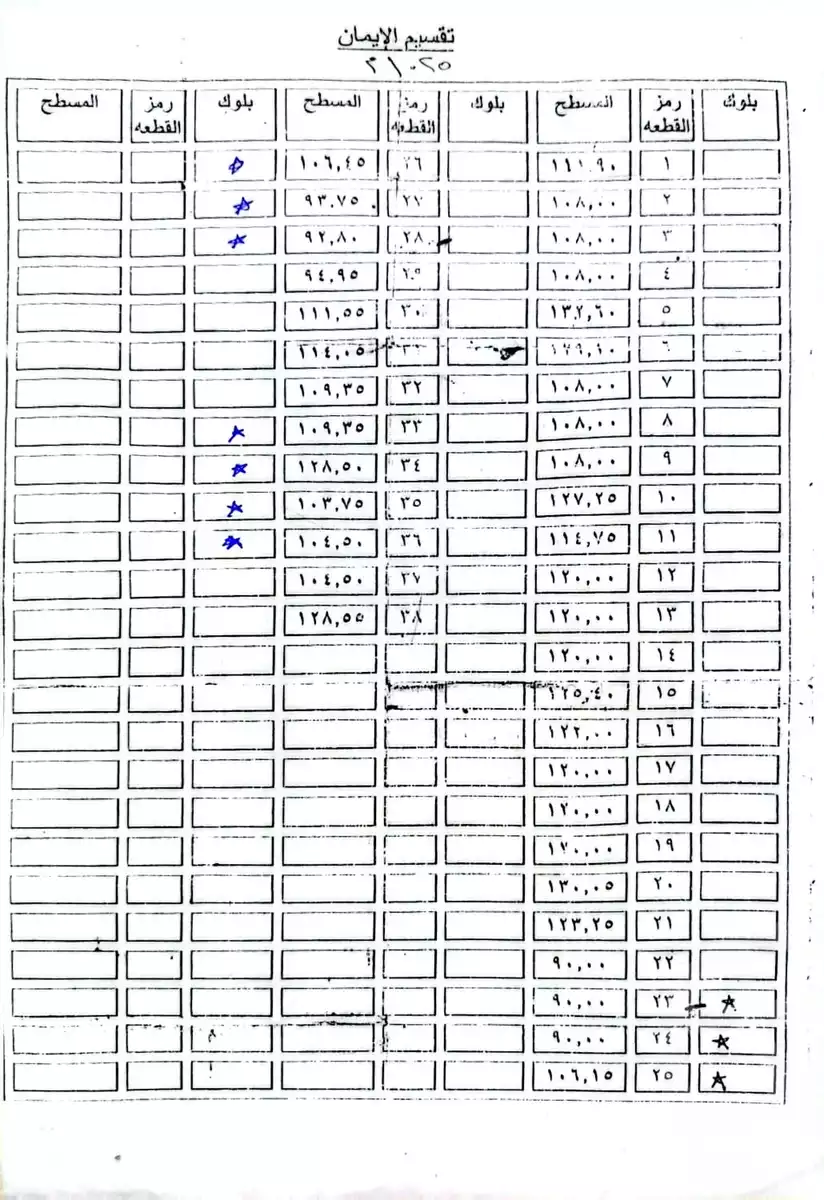 تقسيم الإيمان
بلوك رمز القطعه المسطح بلوك رمز القطعه المسطح بلوك رمز القطعه المسطح
١ ٢٦ ١٠٦,٤٥
٢ ١٠٨,٠٠ ٢٧ ٩٣,٧٥
٣ ١٠٨,٠٠ ٢٨ ٩٢,٨٠
٤ ١٠٨,٠٠ ٢٩ ٩٤,٩٥
٥ ١٣٢,٦٠ ٣٠ ١١١,٥٥
٦ ١١٤,٠٥
٧ ١٠٨,٠٠ ٣٢ ١٠٩,٣٥
٨ ١٠٨,٠٠ ٣٣ ١٠٩,٣٥
٩ ١٠٨,٠٠ ٣٤ ١٢٨,٥٠
١٠ ١٢٧,٢٥ ٣٥ ١٠٣,٧٥
١١ ١١٤,٧٥ ٣٦ ١٠٤,٥٠
١٢ ١٢٠,٠٠ ٣٧ ١٠٤,٥٠
١٣ ١٢٠,٠٠ ٣٨ ١٢٨,٥٥
١٤ ١٢٠,٠٠
١٥ ١٢٥,٤٠
١٦ ١٢٢,٠٠
١٧ ١٢٠,٠٠
١٨ ١٢٠,٠٠
١٩ ١٢٠,٠٠
٢٠ ١٣٠,٠٥
٢١ ١٢٣,٢٥
٢٢ ٩٠,٠٠
٢٣ ٩٠,٠٠
٢٤ ٩٠,٠٠
٢٥ ١٠٦,١٥